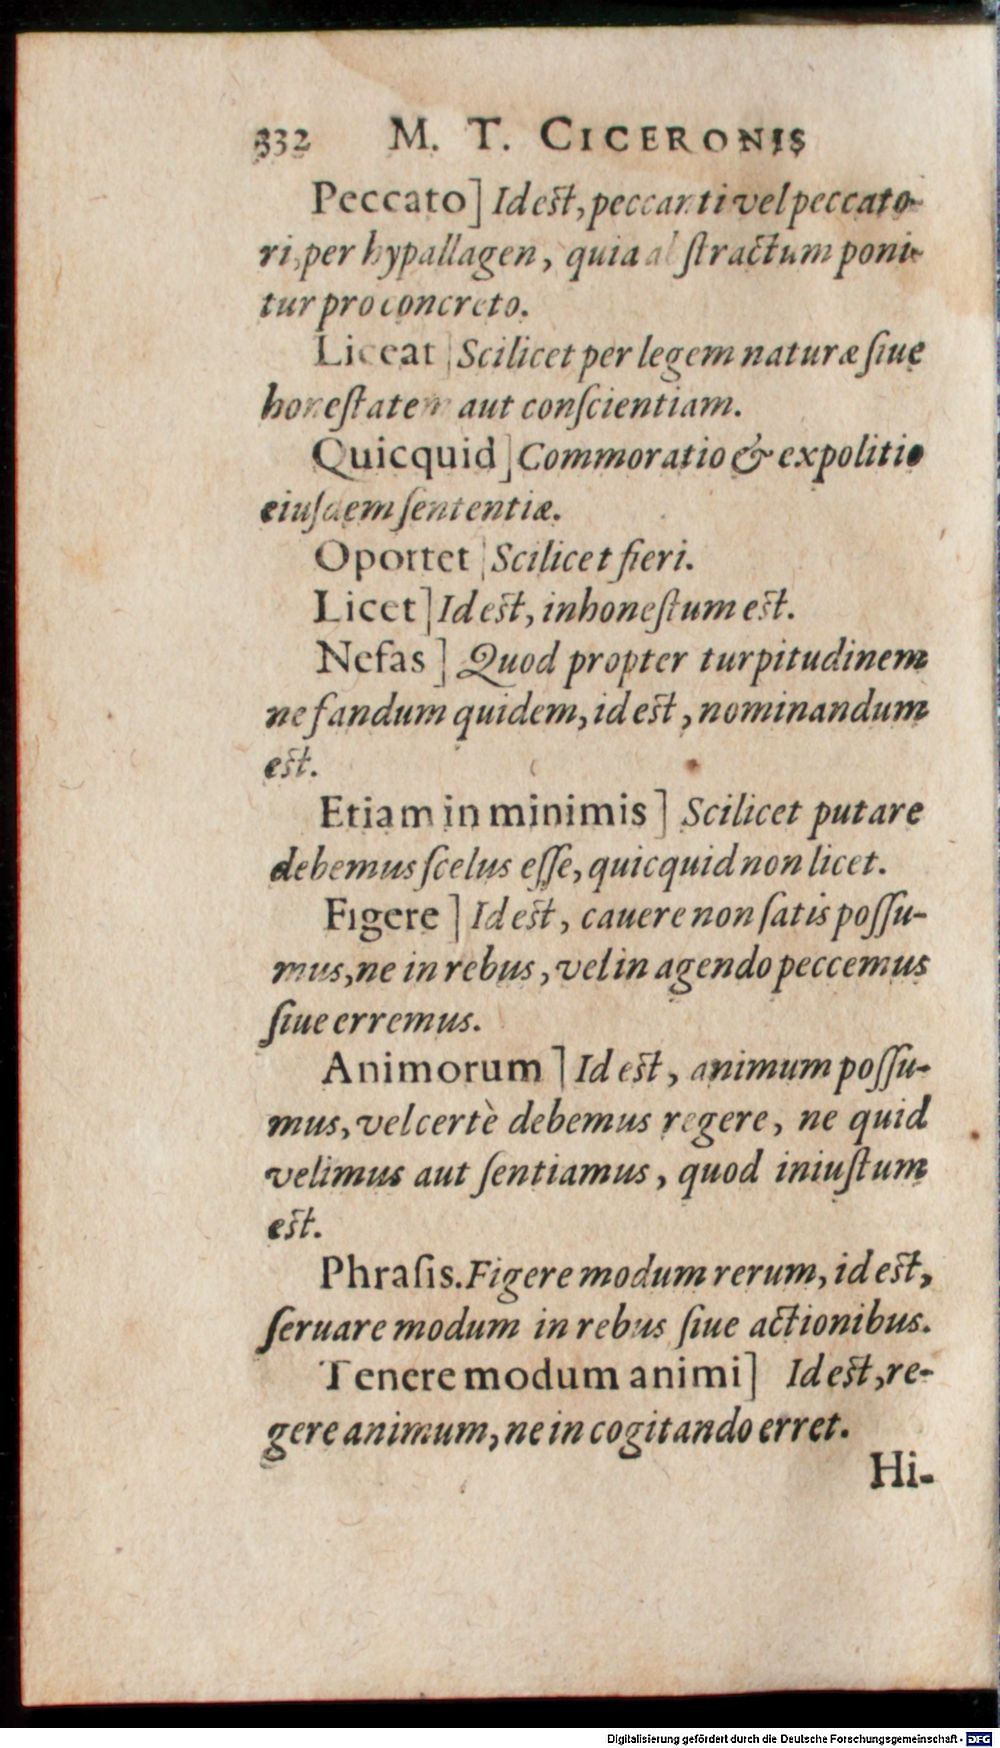 332 M. T. CICERONIS
Peccato] Id eſt, peccanti vel peccato-
ri, per hypallagen, quia abſtractum poni-
tur pro concreto.
Liceat] Scilicet per legem naturæ ſiue
honeſtatem aut conſcientiam.
Quicquid] Commoratio & expolitio
eiuſdem ſententiæ.
Oportet] Scilicet fieri.
Licet] Id eſt, inhoneſtum eſt.
Nefas] Quod propter turpitudinem
ne fandum quidem, id eſt, nominandum
eſt.
Etiam in minimis] Scilicet putare
debemus ſcelus eſſe, quicquid non licet.
Figere] Id eſt, cauere non ſatis poſſu-
mus, ne in rebus, vel in agendo peccemus
ſiue erremus.
Animorum] Id eſt, animum poſſu-
mus, vel certè debemus regere, ne quid
velimus aut ſentiamus, quod iniuſtum
eſt.
Phraſis. Figere modum rerum, id eſt,
ſeruare modum in rebus ſiue actionibus.
Tenere modum animi] Id eſt, re-
gere animum, ne in cogitando erret.
Hi-
Digitalisierung gefördert durch die Deutsche Forschungsgemeinschaft - DFG